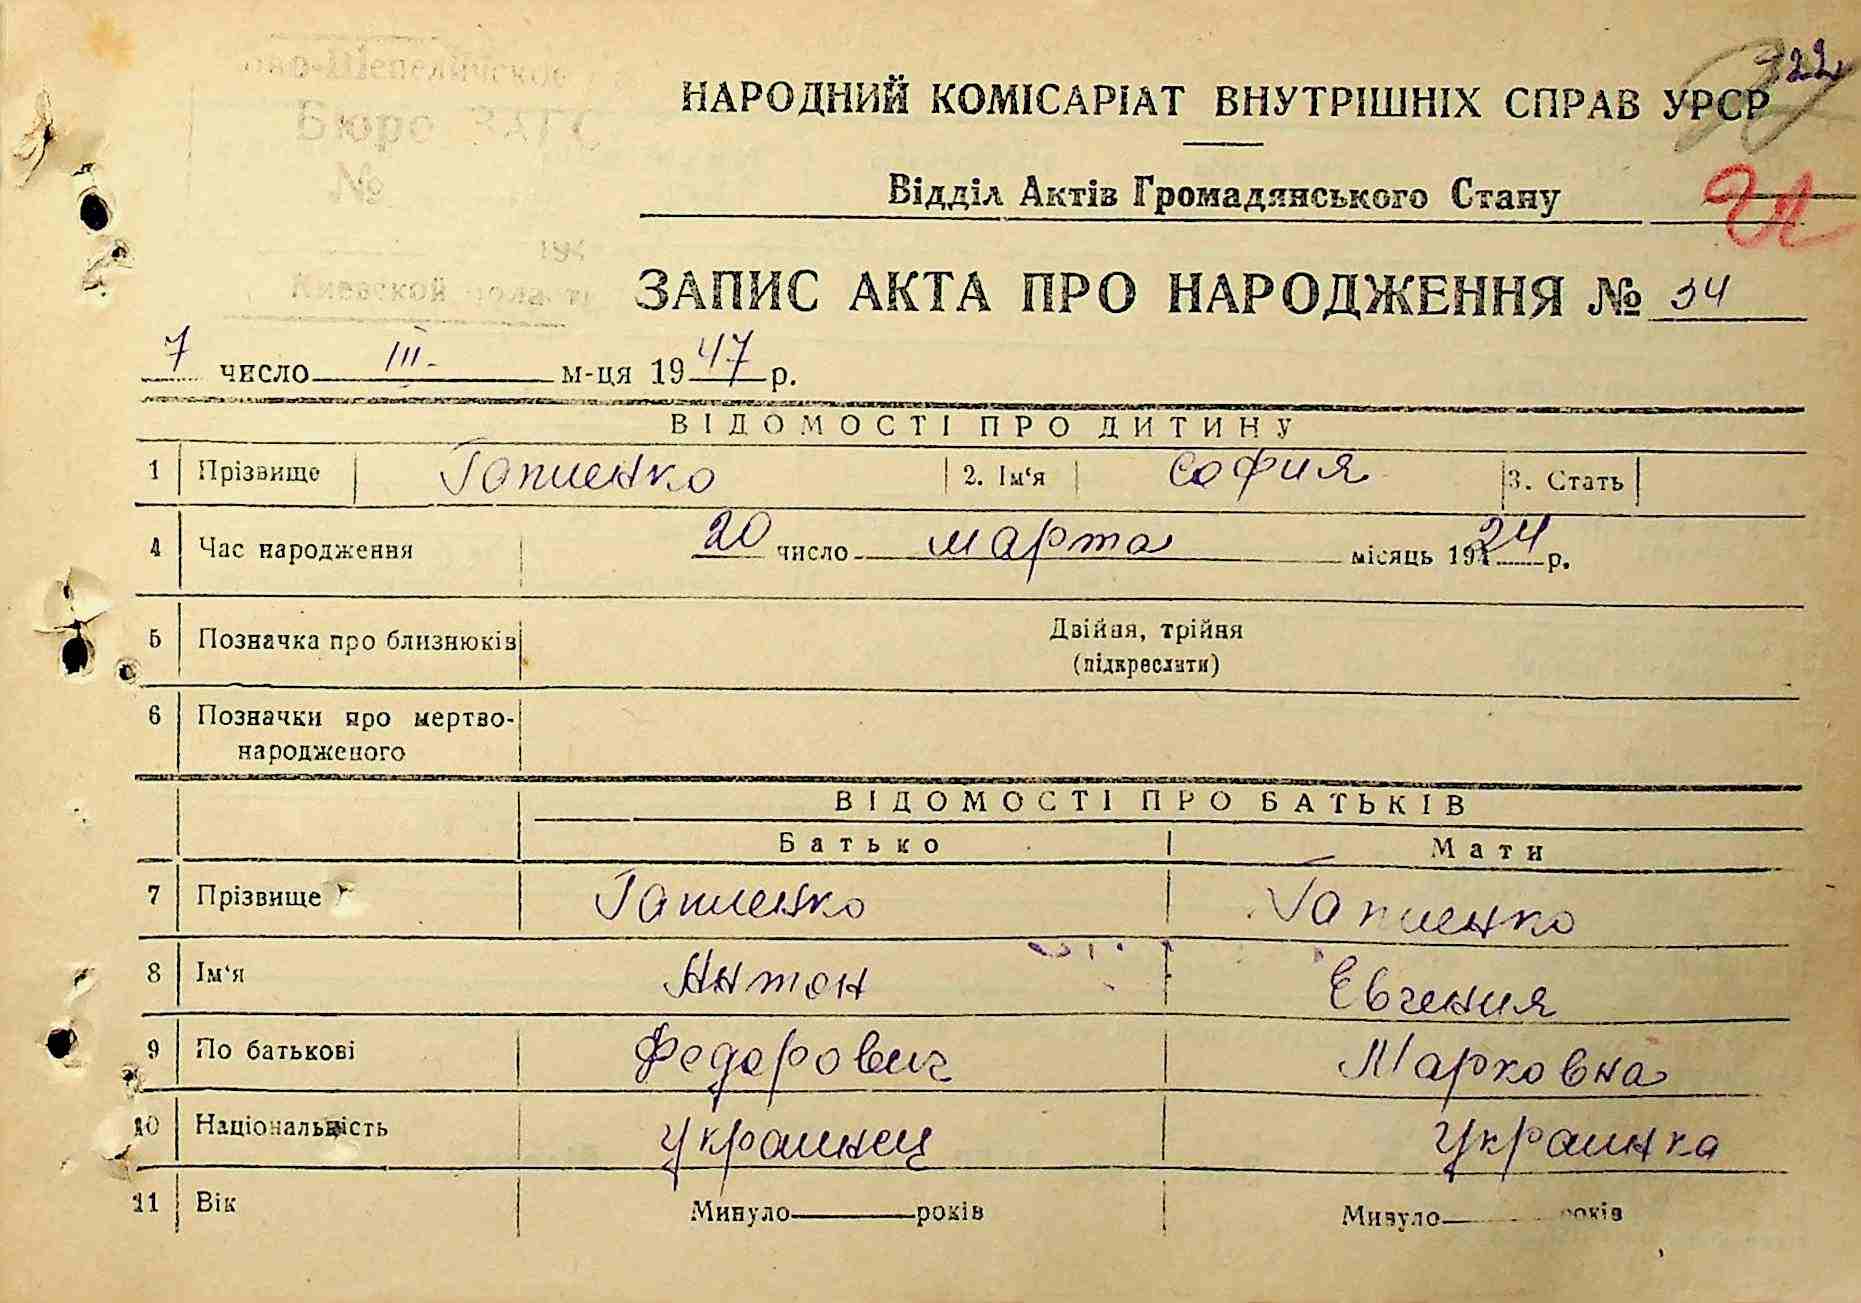 322
НАРОДНИЙ КОМІСАРІАТ ВНУТРІШНІХ СПРАВ УРСР
Бюро ЗАГС
№
Відділ Актів Громадянського Стану
194
Киевской
ЗАПИС АКТА ПРО НАРОДЖЕННЯ № 34
7 число III м-ця 1947 р.
ВІДОМОСТІ ПРО ДИТИНУ
1 Прізвище Гапиенко 2. Ім'я София 3. Стать
4 Час народження 20 число марта місяць 1924 р.
5 Позначка про близнюків Двійня, трійня
(підкреслити)
6 Позначки про мертво-
народженого
ВІДОМОСТІ ПРО БАТЬКІВ
Батько Мати
7 Прізвище Гапиенко Гапиенко
8 Ім'я Антон Евгения
9 По батькові Федорович Марковна
10 Національність украинец украинка
11 Вік Минуло років Минуло років